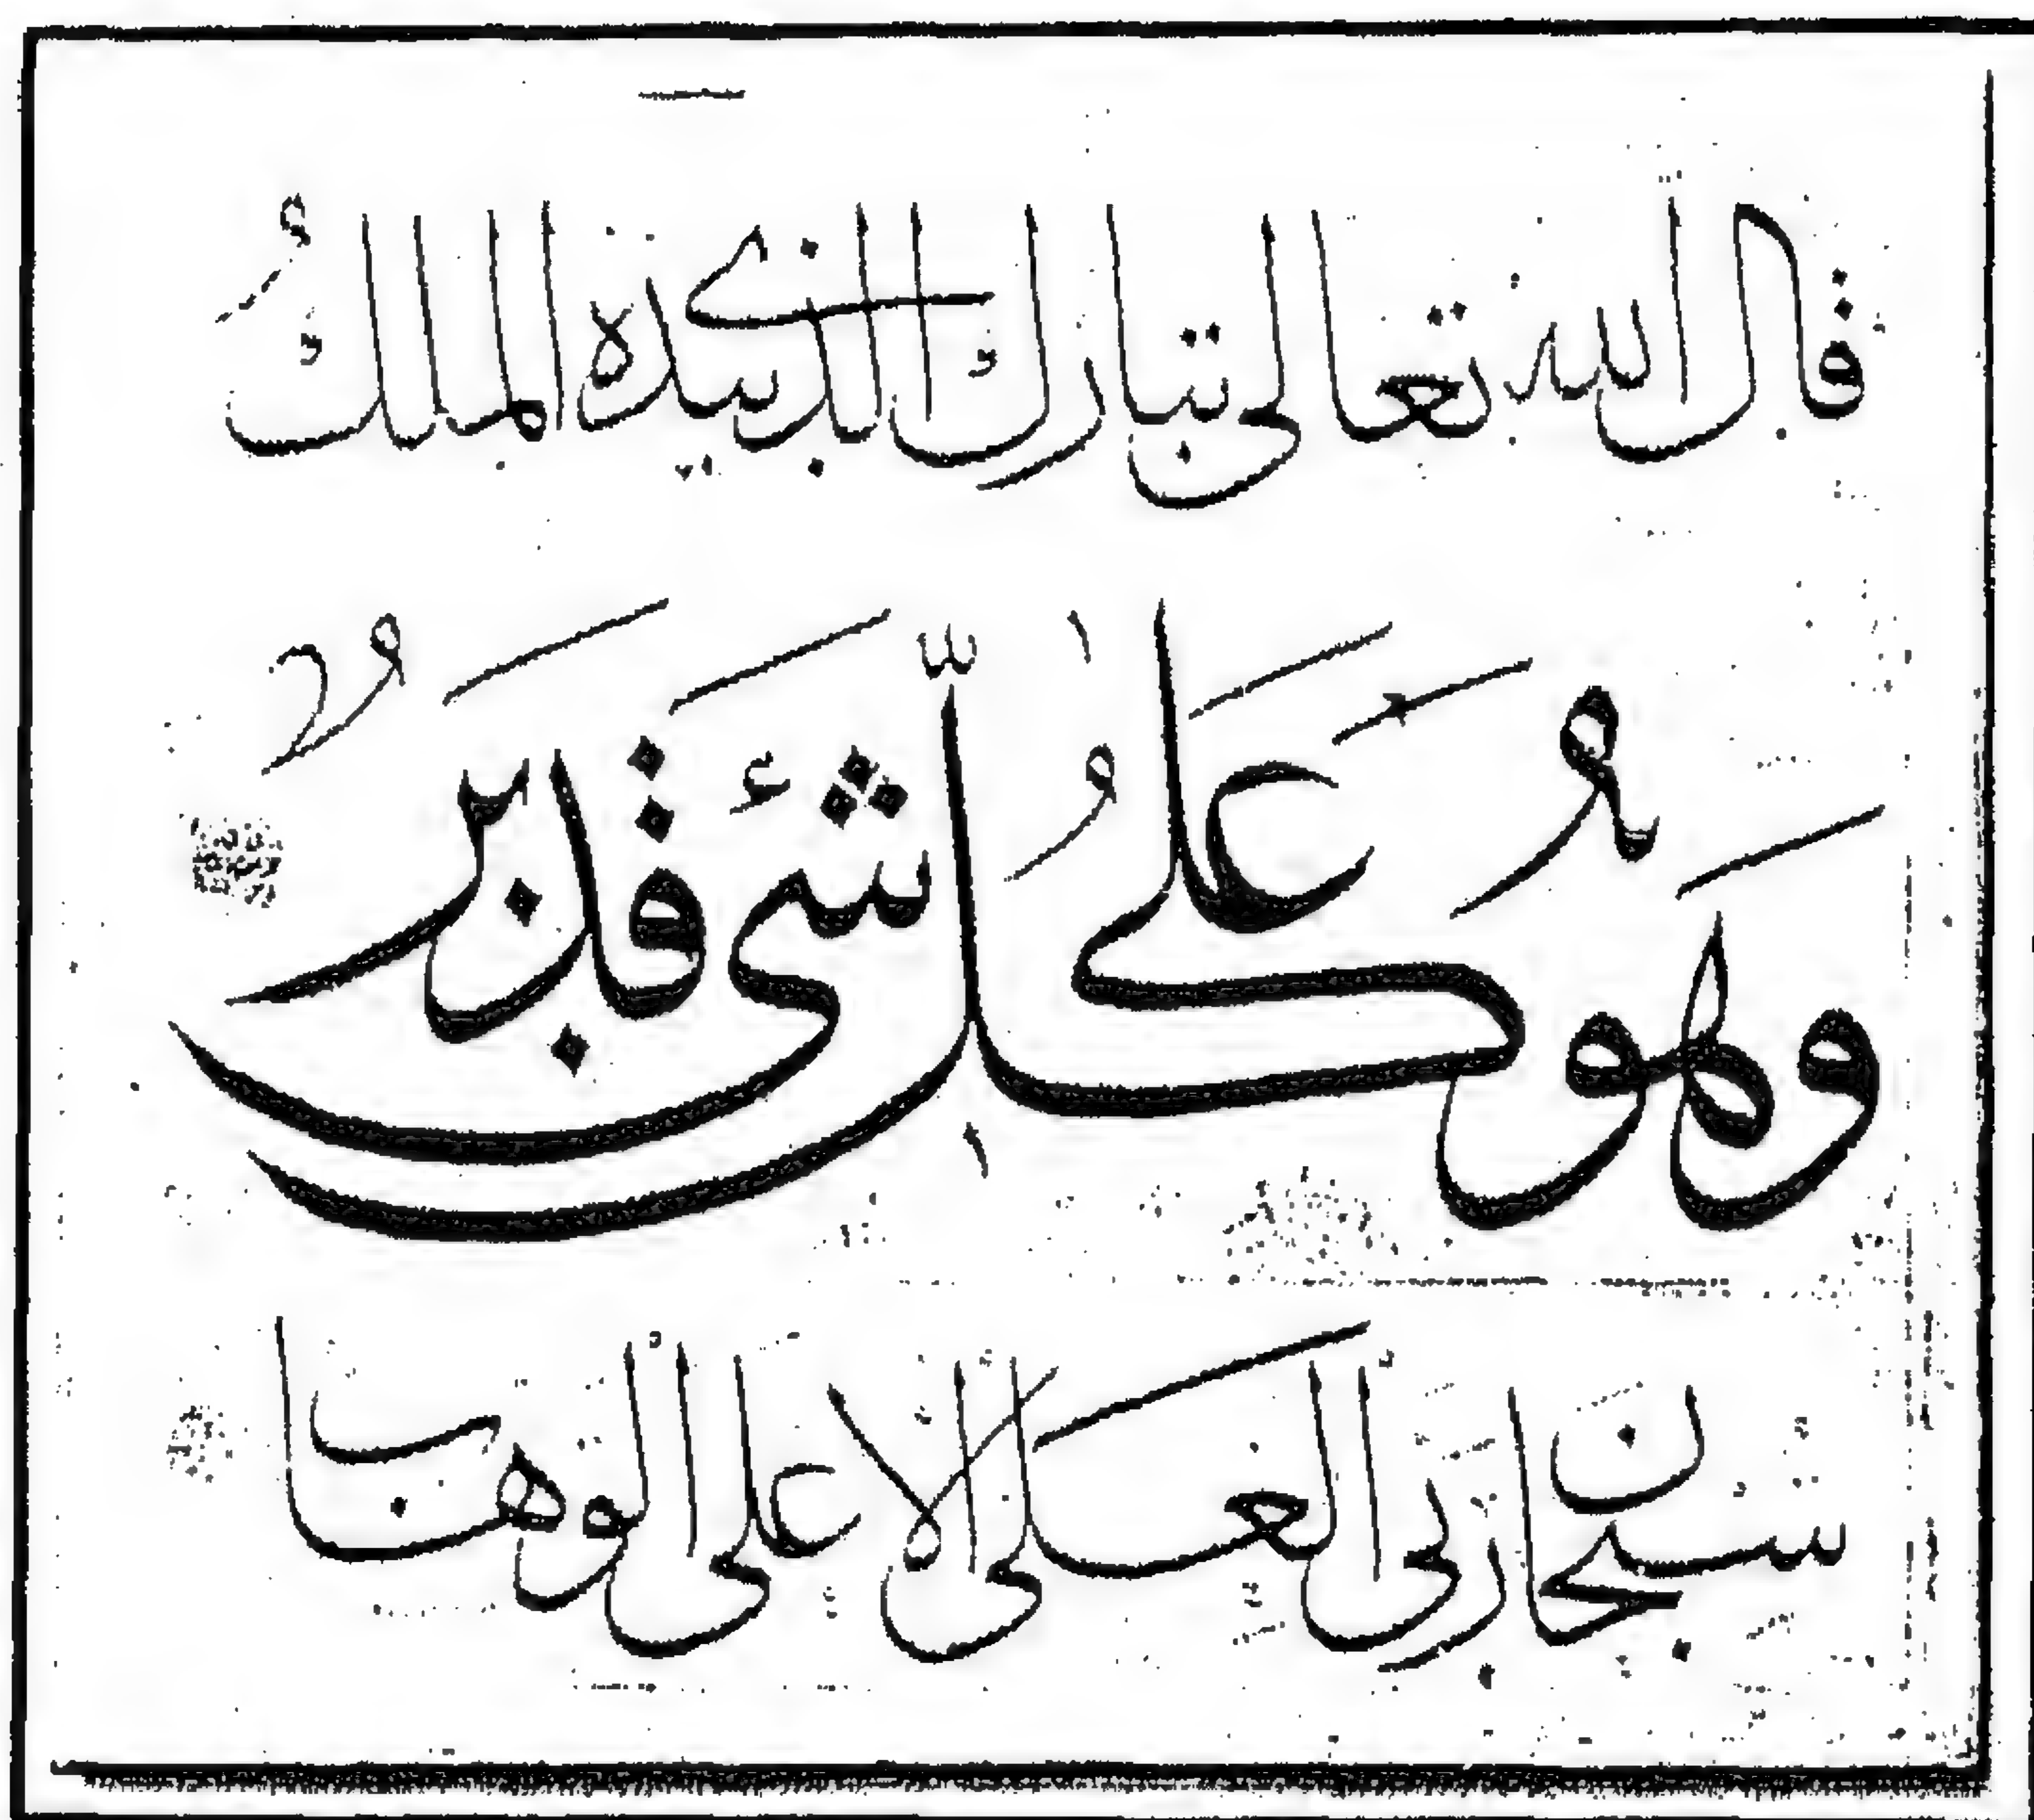 قال الله تعالى تبارك الذي بيده الملك
وَهُوَ عَلَى كُلِّ شَيْءٍ قَدِيرٌ
سبحان ربي العلي الاعلى الوهاب